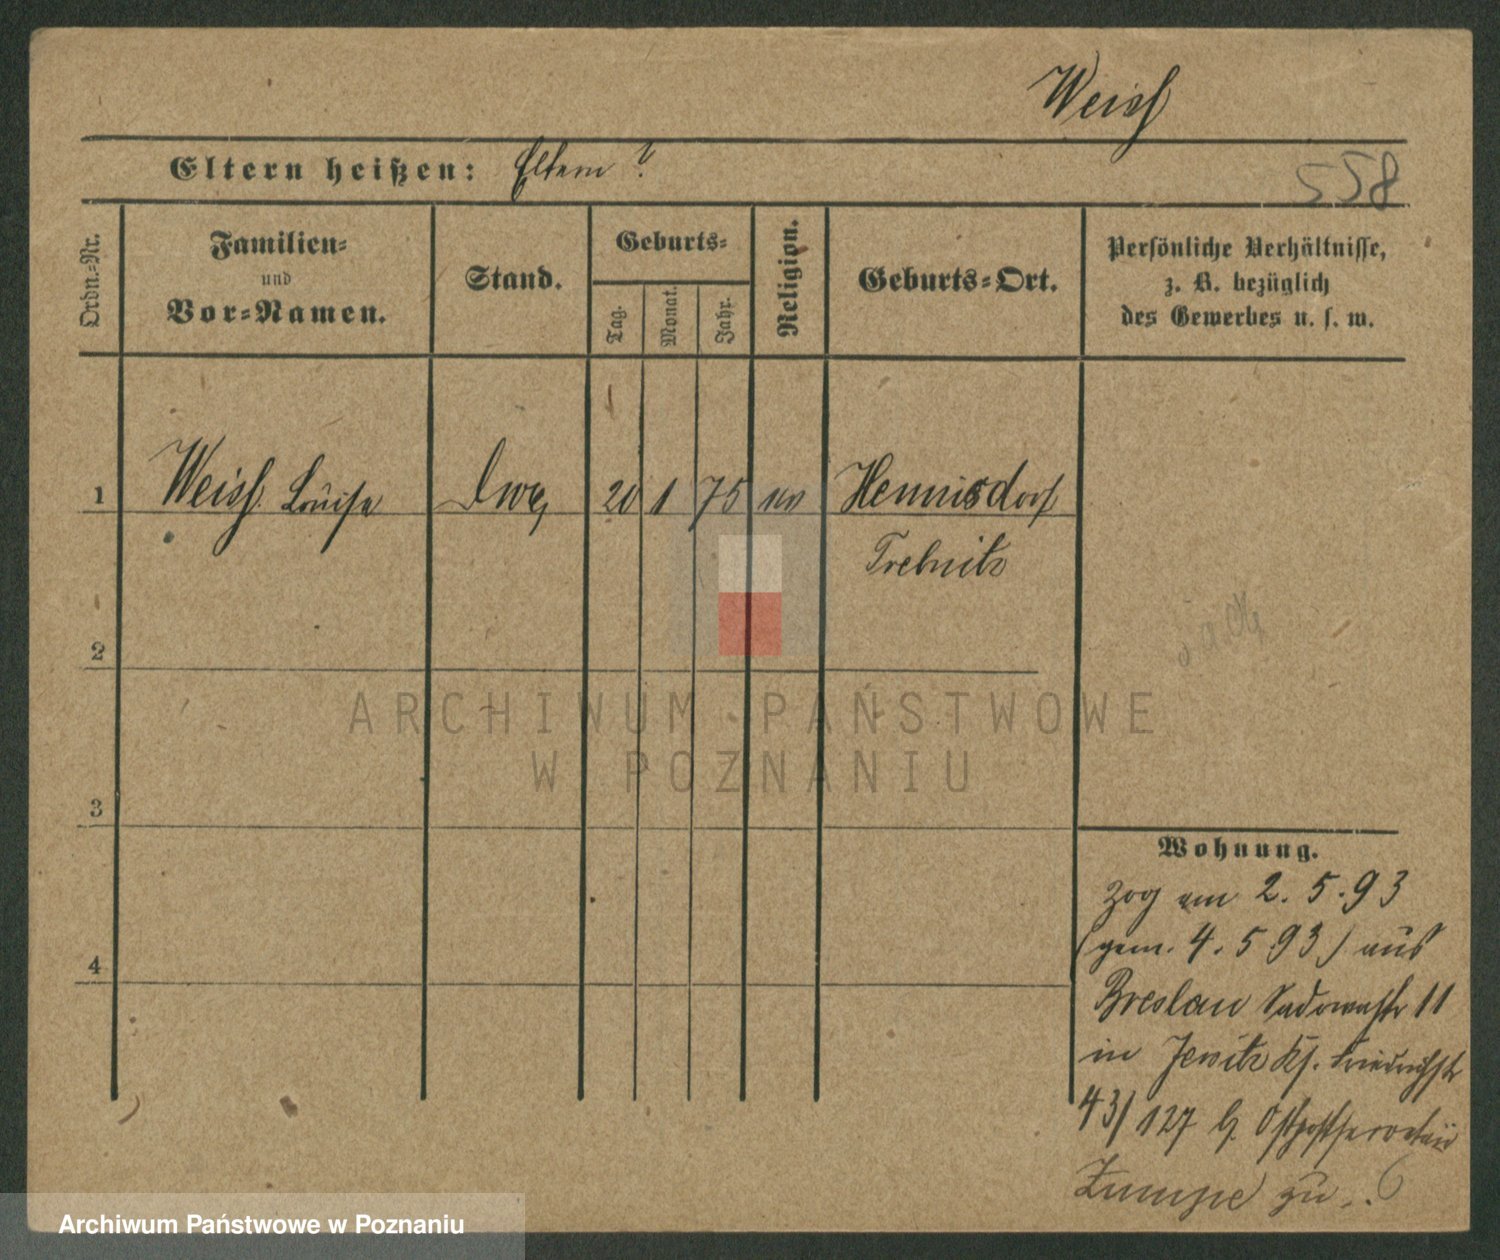 Weiß
Eltern heißen: Eltern ?
558
Ordn.=Nr.
Familien=
und
Vor=Namen.
Stand.
Geburts=
Tag.
Monat.
Jahr.
Religion.
Geburts=Ort.
Persönliche Verhältnisse,
z. B. bezüglich
des Gewerbes u. s. w.
1 Weiß Louise 20 1 75 Hennisdorf
Trebnitz
2
ARCHIWUM PAŃSTWOWE
W POZNANIU
3
4
Wohnung.
Zog am 2. 5. 93
(gem. 4. 5 93) aus
Breslau Sadowastr 11
in Jersitz Friedrichstr
43/127 b.
Zumpe zu
Archiwum Państwowe w Poznaniu